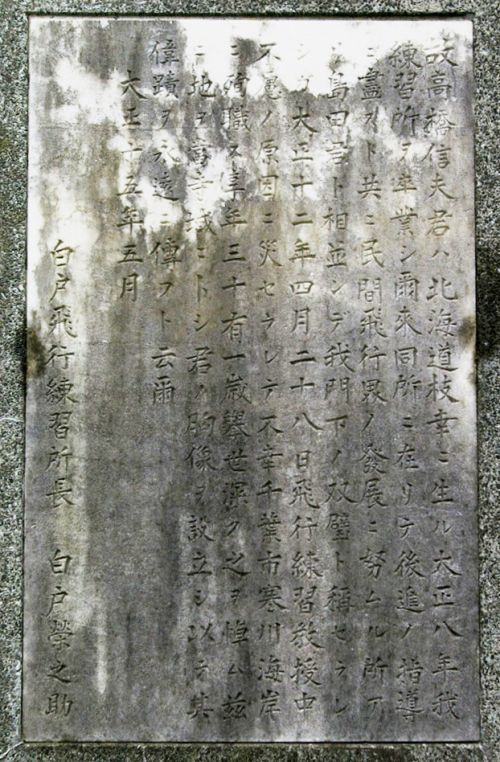 故高橋信夫君ハ北海道枝幸ニ生ル大正八年我
練習所ヲ卒業シ爾来同所ニ在リテ後進ノ指導
ニ盡スト共ニ民間飛行界ノ發展ニ努ムル所ア
リ島田君ト相並ンデ我門下ノ双璧ト稱セラレ
シガ大正十二年四月二十八日飛行練習教授中
不慮ノ原因ニ災セラレテ不幸千葉市寒川海岸
ニ殉職ス享年三十有一歳舉世深ク之ヲ悼ム茲
ニ地ヲ當寺域ニトシ君ノ胸像ヲ設立シ以テ其
偉蹟ヲ永遠ニ傳フト云爾
大正十五年五月
白戸飛行練習所長 白戸榮之助